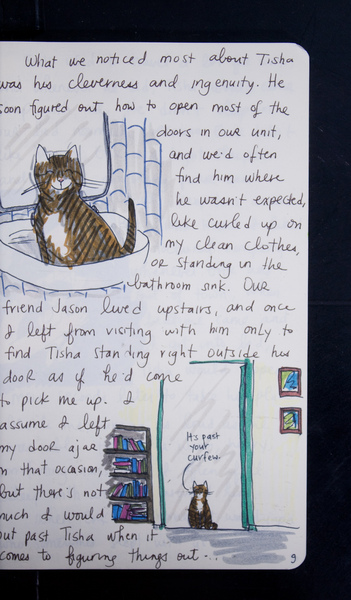 What we noticed most about Tisha
was his cleverness and ingenuity. He
soon figured out how to open most of the
doors in our unit,
and we'd often
find him where
he wasn't expected,
like curled up on
my clean clothes,
or standing in the
bathroom sink. Our
friend Jason lived upstairs, and once
I left from visiting with him only to
find Tisha standing right outside his
door as if he'd come
to pick me up. I
assume I left
my door ajar
on that occasion,
but there's not
much I would
put past Tisha when it
comes to figuring things out...
It's past
your
curfew.
9